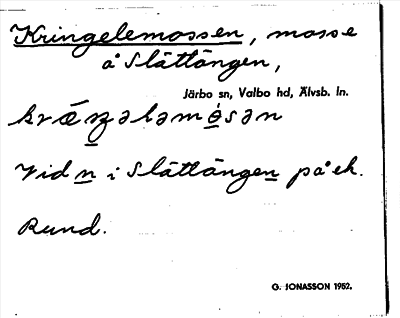 Kringelemossen, mosse
å Slättängen,
Järbo sn, Valbo hd, Älvsb. ln.
Vid n i Slättängen på ek.
Rund.
G. JONASSON 1952.